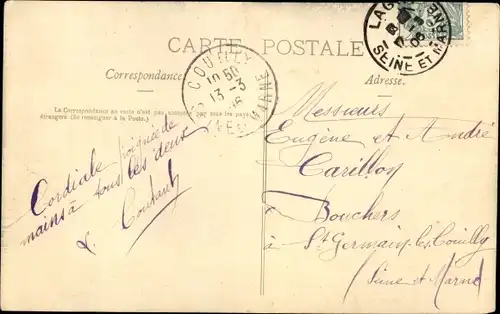 CARTE POSTALE
LAG
SEINE ET MARNE
COUILLY
10 50
13-3
06
ET MARNE
Correspondance
Adresse.
La Correspondance au verso n'est pas acceptée par tous les pays
étrangers (Se renseigner à la Poste.)
Cordiale poignée de
mains à tous les deux
Messieurs
Eugène et André
Carillon
Bouchers
à St Germain-les-Couilly
Seine et Marne